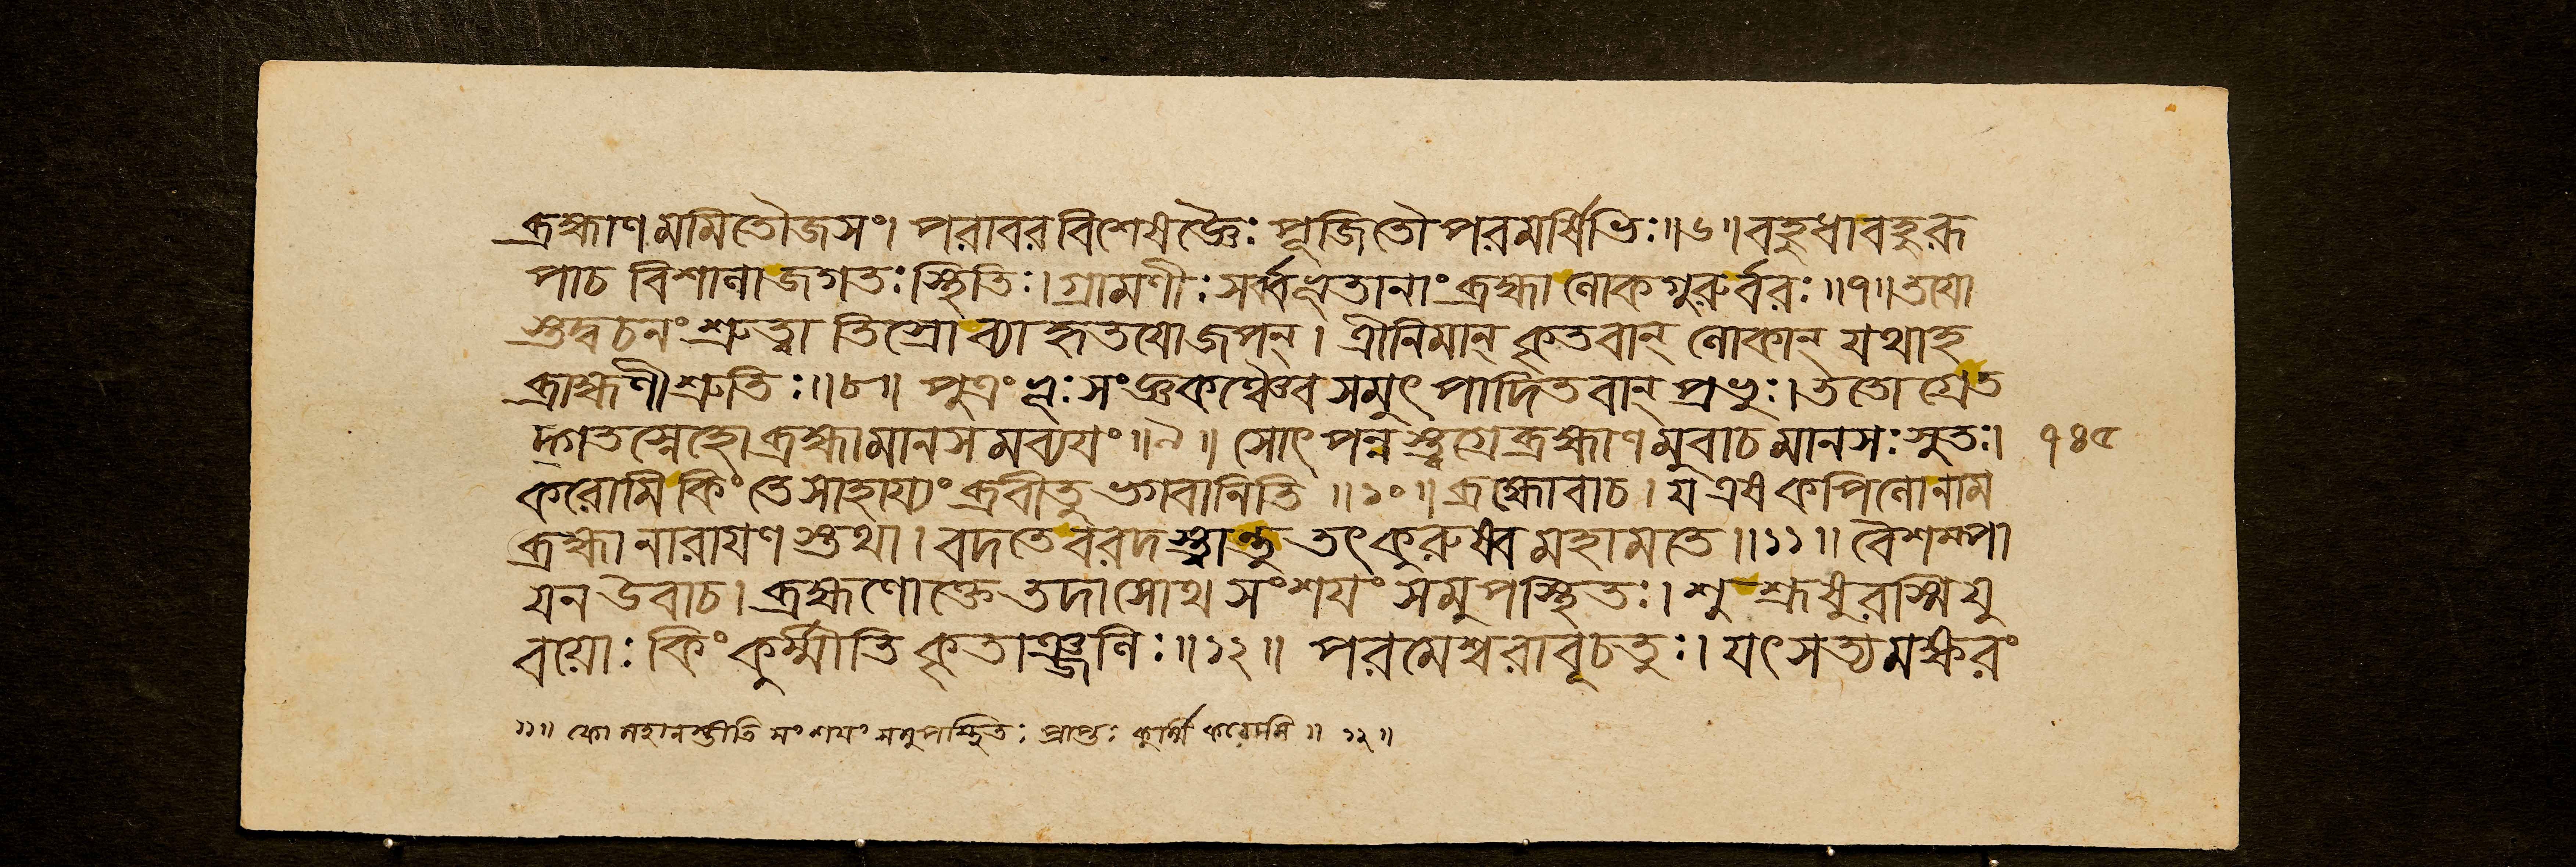 ব্রহ্মাণমমিতৌজসং। পরাবরবিশেষজ্ঞৈঃ পূজিতৌপরমর্ষিভিঃ॥৬॥বহুধাবহুরূ
পাচ বিশালাজগতঃস্থিতিঃ। গ্রামণীঃসর্ব্বভূতানাংব্রহ্মালোকগুরুর্বরঃ॥৭॥তযো
স্তদ্বচনংশ্রুত্বা তিস্রোব্যাহৃতযোজপন্। ত্রীনিমান্ কৃতবান্ লোকান্ যথাহ
ব্রাহ্মণীশ্রুতিঃ॥৮॥ পুত্রংভূঃসংজ্ঞকঞ্চৈবসমুৎপাদিতবান্ প্রভুঃ। ততোগ্রেত
দ্গতস্নেহোব্রহ্মামানসমব্যযং॥৯॥ সোৎপন্নস্ত্বগ্রেব্রহ্মাণমুবাচমানসঃসুতঃ। ৭৪৫
করোমি কিংতেসাহায্যংব্রবীতুভগবানিতি॥১০॥ব্রহ্মোবাচ। যএষকপিলোনাম
ব্রহ্মানারাযণস্তথা। বদতেবরদস্ত্বান্তুতৎকুরুষ্বমহামতে॥১১॥ বৈশম্পা
যনউবাচ। ব্রহ্মণোক্তেতদাসোথসংশযংসমুপস্থিতঃ। শুশ্রূষুরস্মিযু
বযোঃকিংকুর্ম্মীতি কৃতাঞ্জলিঃ॥১২॥ পরমেশ্বরাবূচতুঃ। যৎসত্যমক্ষরং
১১॥ কো মহানস্তীতি সংশযং সমুপস্থিতঃ প্রাপ্তঃ কুর্ম্মি করোমি॥ ১২॥